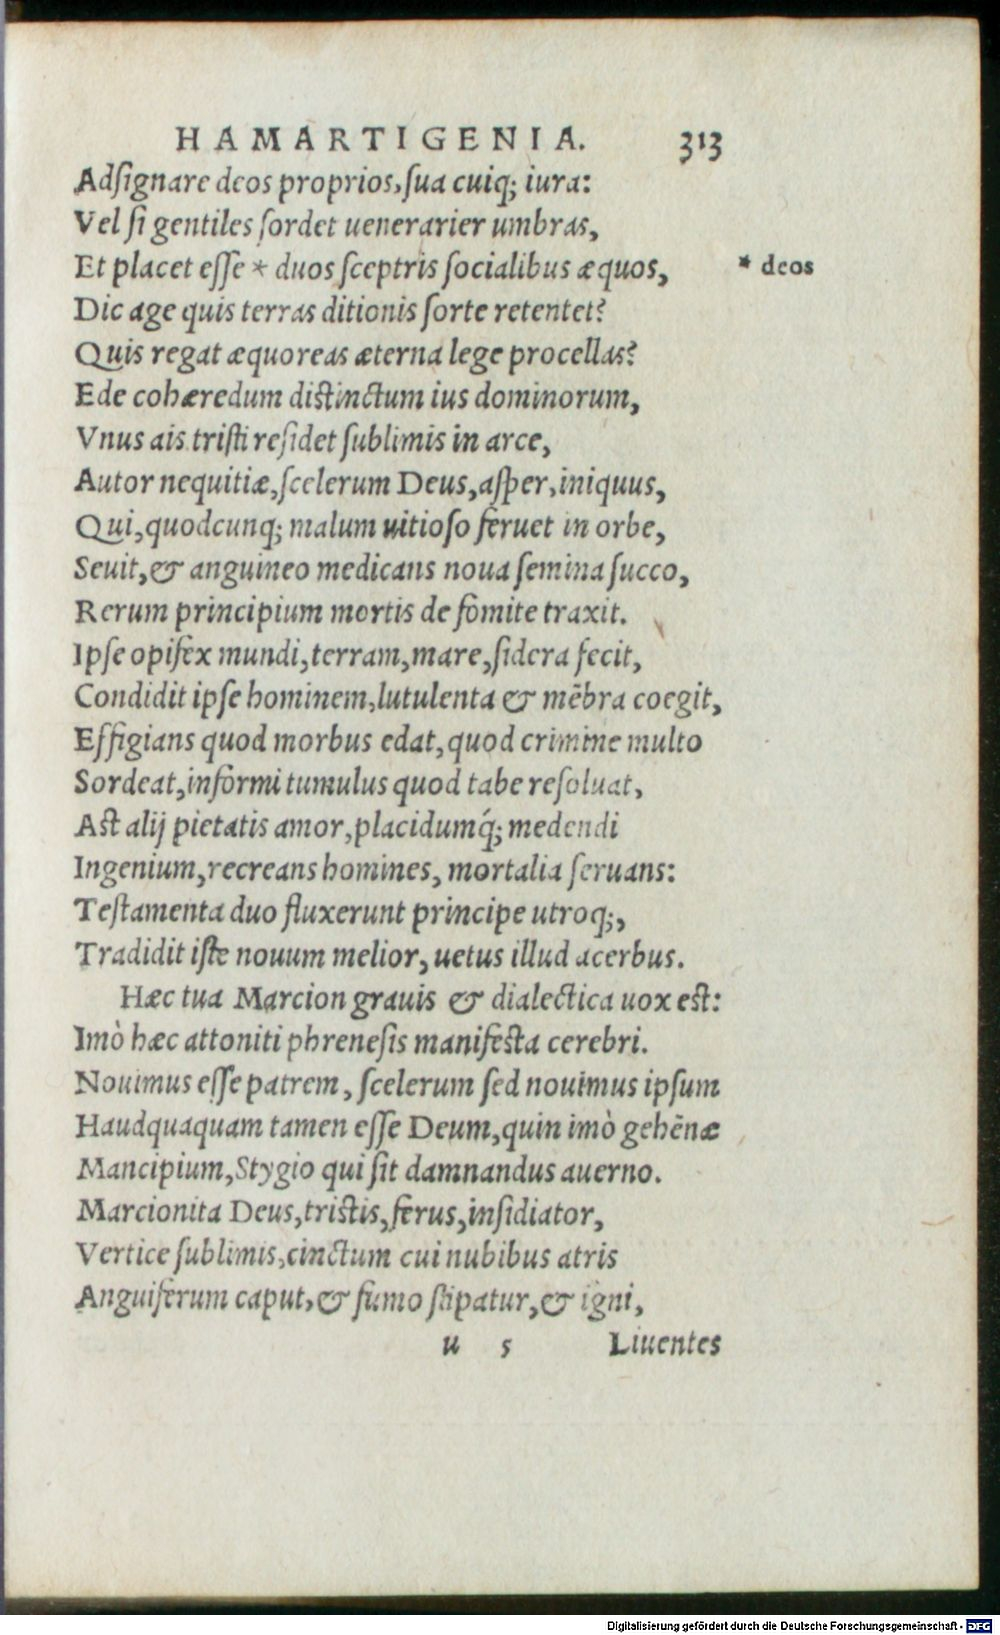 HAMARTIGENIA. 313
Adſignare deos proprios, ſua cuiq; iura:
Vel ſi gentiles ſordet uenerarier umbras,
Et placet eſſe * duos ſceptris ſocialibus æquos, * deos
Dic age quis terras ditionis ſorte retentet?
Quis regat æquoreas æterna lege procellas?
Ede cohæredum diſtinctum ius dominorum,
Vnus ais triſti reſidet ſublimis in arce,
Autor nequitiæ, ſcelerum Deus, aſper, iniquus,
Qui, quodcunq; malum uitioſo feruet in orbe,
Seuit, & anguineo medicans noua ſemina ſucco,
Rerum principium mortis de fomite traxit.
Ipſe opifex mundi, terram, mare, ſidera fecit,
Condidit ipſe hominem, lutulenta & mẽbra coegit,
Effigians quod morbus edat, quod crimine multo
Sordeat, informi tumulus quod tabe reſoluat,
Aſt alij pietatis amor, placidumq́; medendi
Ingenium, recreans homines, mortalia ſeruans:
Teſtamenta duo fluxerunt principe utroq;,
Tradidit iſte nouum melior, uetus illud acerbus.
Hæc tua Marcion grauis & dialectica uox eſt:
Imò hæc attoniti phreneſis manifeſta cerebri.
Nouimus eſſe patrem, ſcelerum ſed nouimus ipſum
Haudquaquam tamen eſſe Deum, quin imò gehẽnæ
Mancipium, Stygio qui ſit damnandus auerno.
Marcionita Deus, triſtis, ferus, inſidiator,
Vertice ſublimis, cinctum cui nubibus atris
Anguiferum caput, & fumo ſtipatur, & igni,
u 5 Liuentes
Digitalisierung gefördert durch die Deutsche Forschungsgemeinschaft - DFG